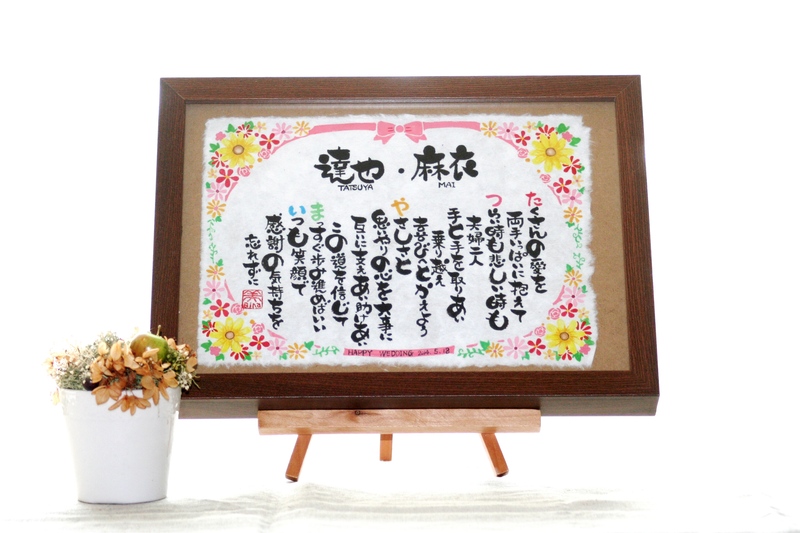 達也・麻衣
TATSUYA MAI
たくさんの愛を
両手いっぱいに抱えて
つらい時も悲しい時も
夫婦二人
手と手を取りあい
乗り越え
喜びへとかえよう
やさしさと
思いやりの心を大事に
互いに支えあい助けあい
この道を信じて
まっすぐ歩み進めばいい
いつも笑顔で
感謝の気持ちを
忘れずに
HAPPY WEDDING
5.18